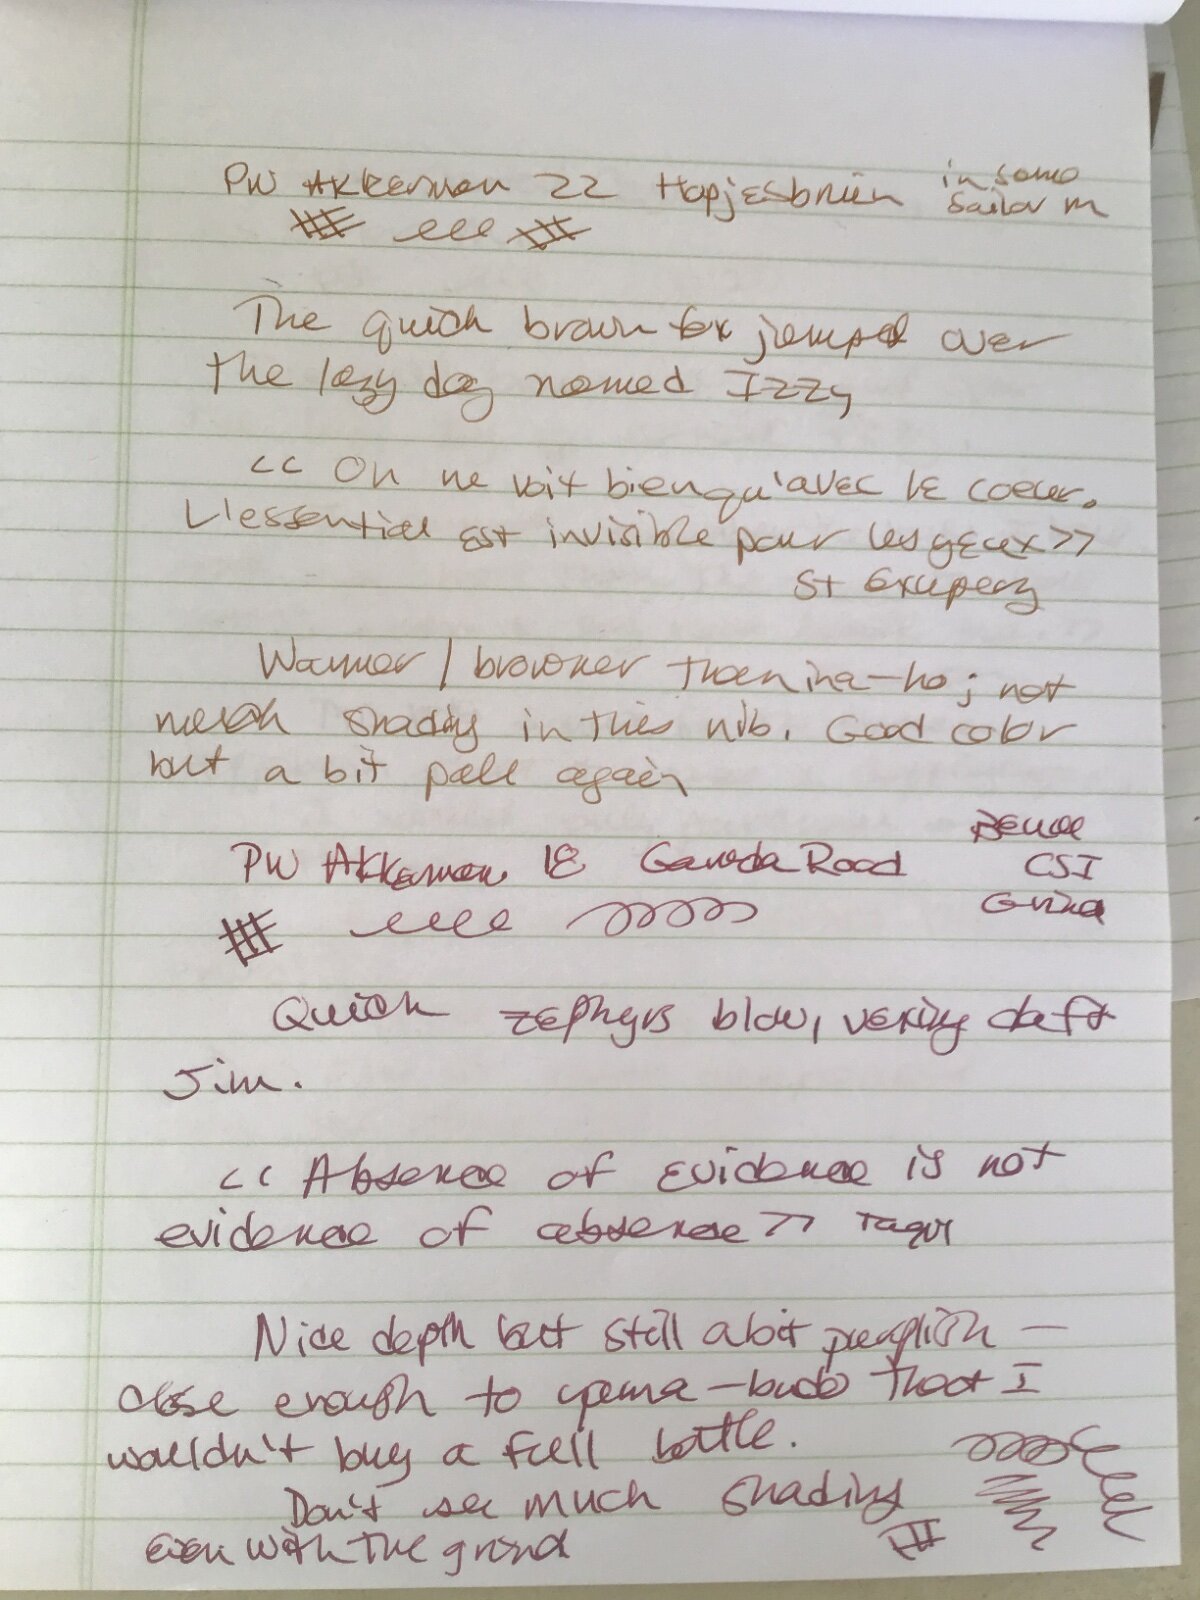 PW Akkerman 22 Hopjesbruin in same
Sailor M
The quick brown fox jumped over
the lazy dog named Izzy
<< On ne voit bien qu'avec le coeur.
L'essentiel est invisible pour les yeux >>
St Exupery
Warmer / browner than ina-ho; not
much shading in this nib. Good color
but a bit pale again
PW Akkerman 18 Garuda Rood
CSI
Grind
Quick zephyrs blow, vexing daft
Jim.
<< Absence of evidence is not
evidence of absence >>
Nice depth but still a bit purplish —
close enough to yama-budo that I
wouldn't buy a full bottle.
Don't see much shading
even with the grind